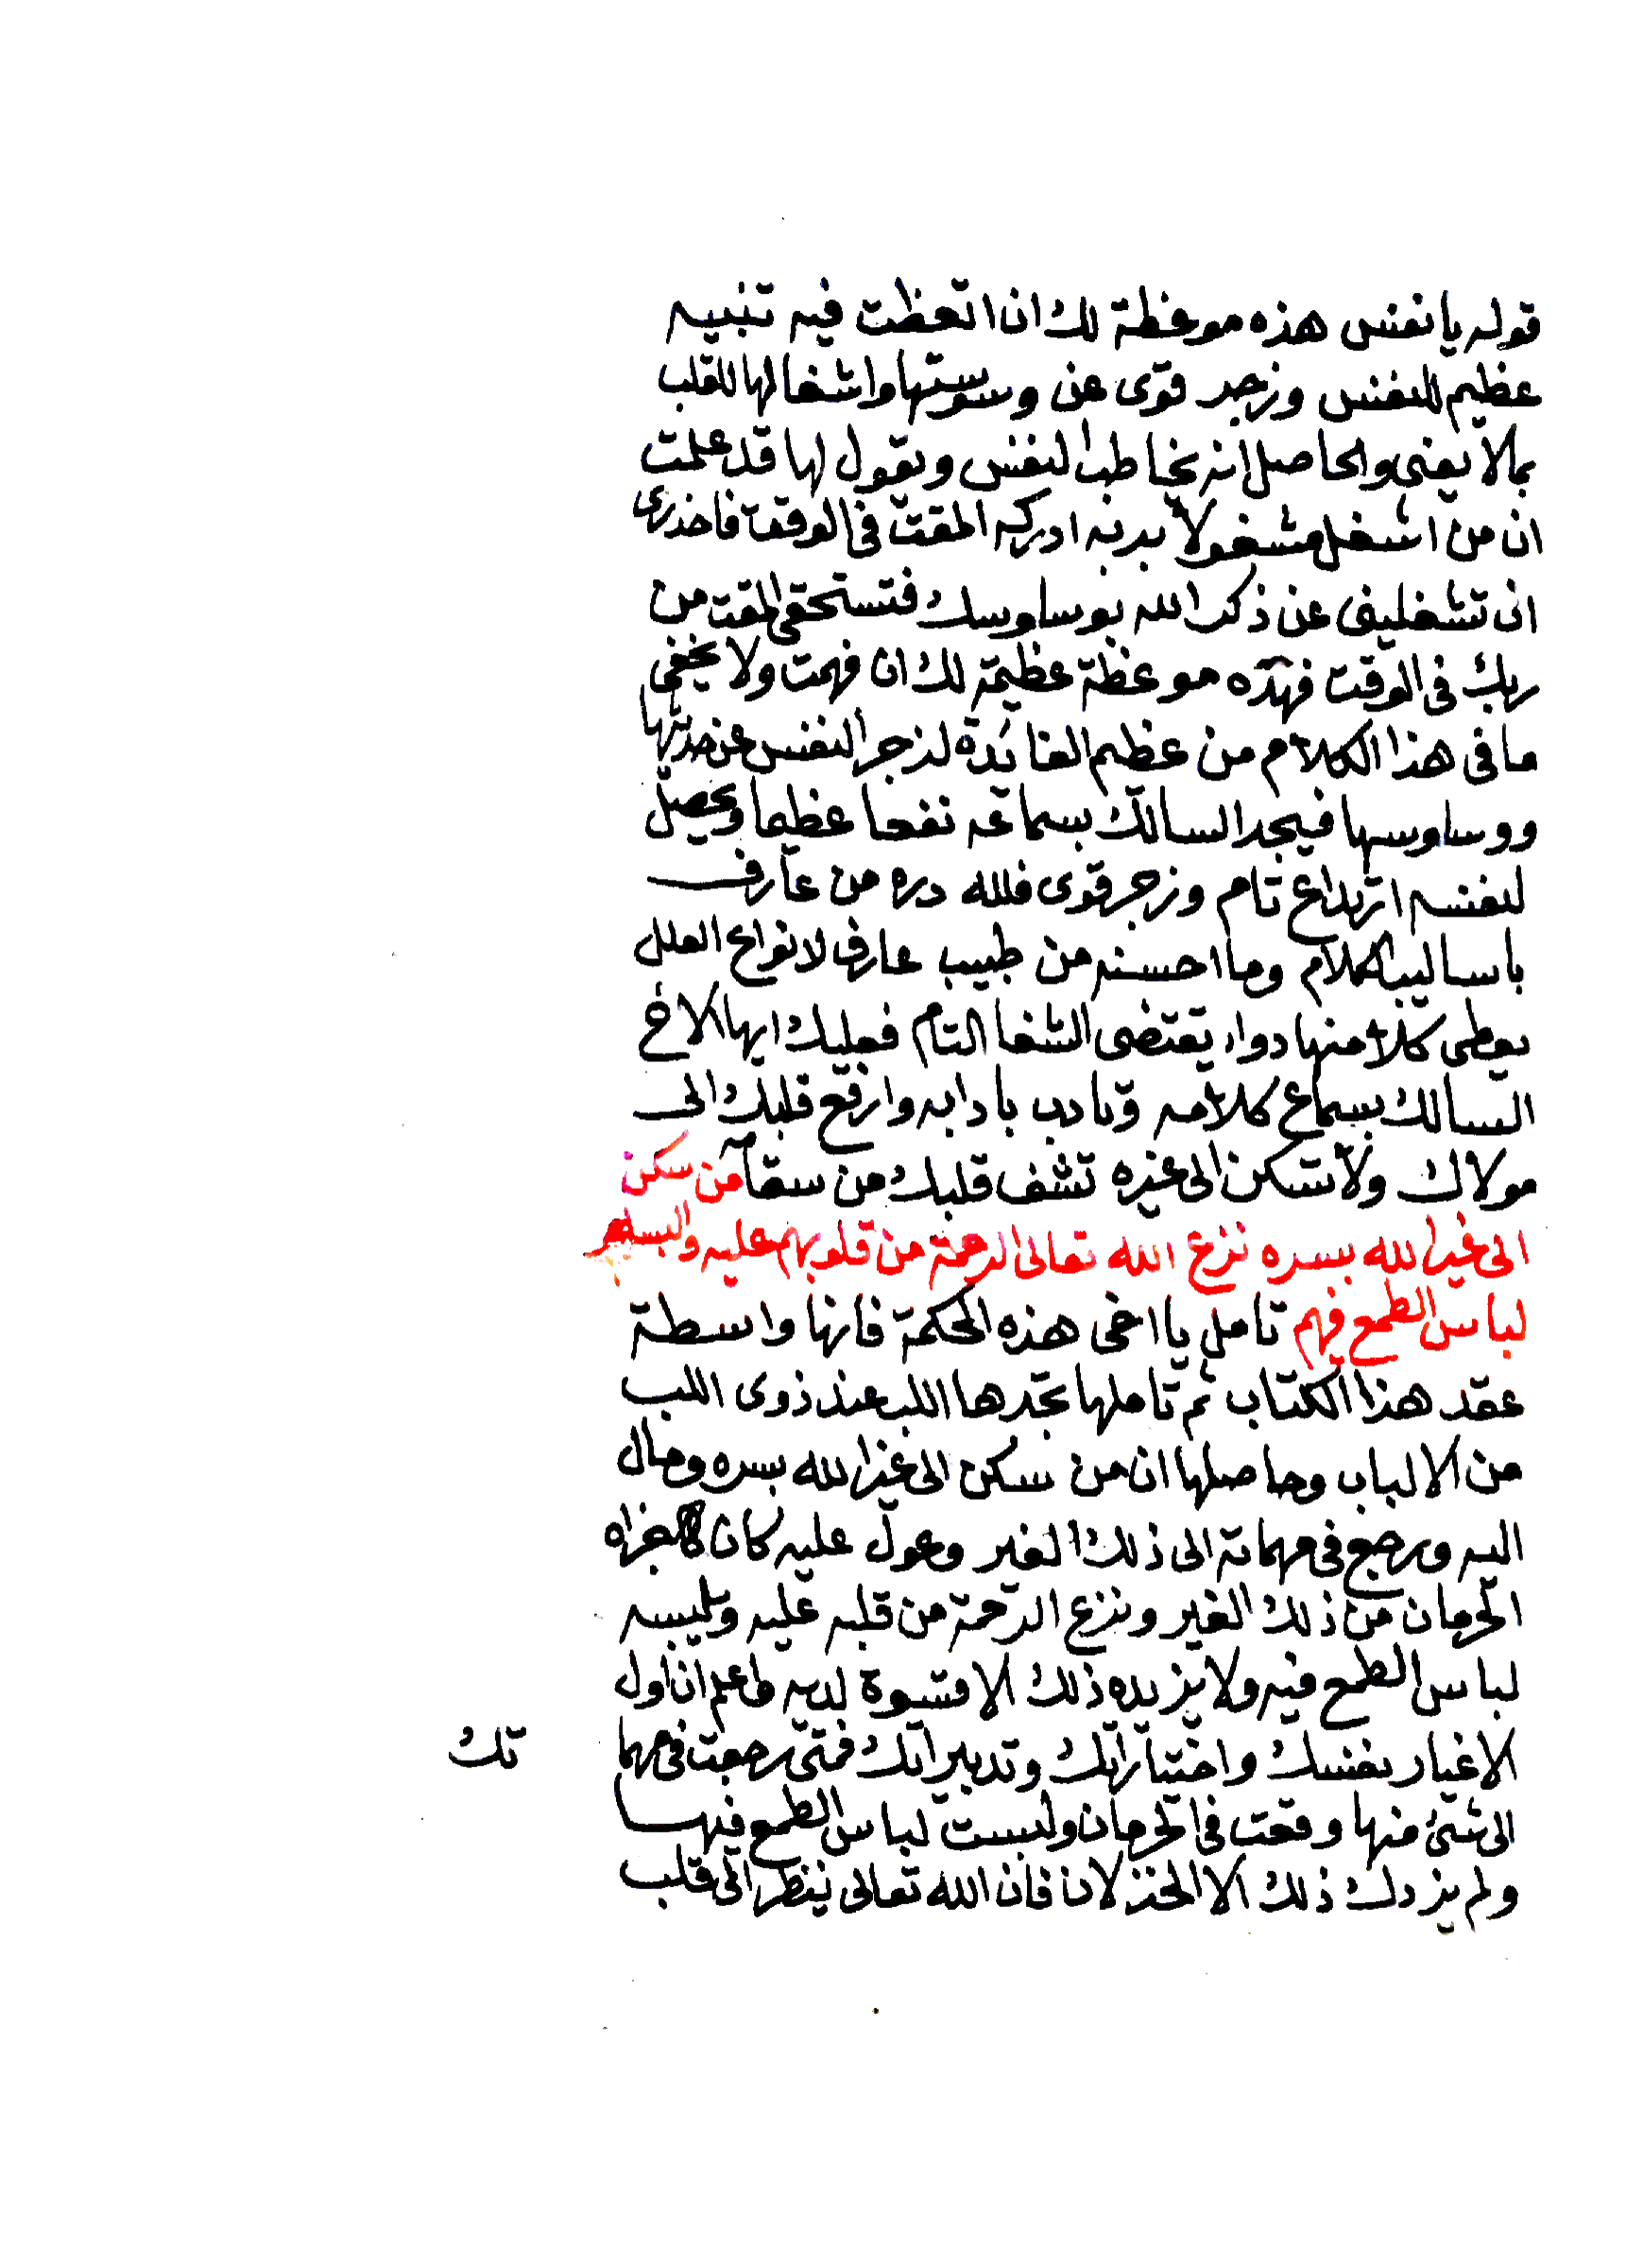 قوله يا نفس هذه موعظة لك ان اتعظت فيه تنبيه
عظيم للنفس وزجر قوى عن وسوستها واشغالها للقلب
بمالا يعنى والحاصل انه يخاطب النفس ويقول لها قد علمت
ان من اشغل مشغولا بربه ادركه المقت فى الوقت فاحذرى
ان تشغلينى عن ذكر الله بوساوسك فتستحقى المقت من
ربك فى الوقت فهذه موعظة عظيمة لك ان فهمت ولا يخفى
ما فى هذا الكلام من عظيم الفائدة لزجر النفس عن حديثها
ووساوسها فيجد السالك بسماعه نفعا عظيما ويحصل
لنفسه ارتداع تام وزجر قوى فلله دره من عارف
باساليب الكلام وما احسنه من طبيب عارف لانواع العلل
يعطى كلا منها دواء يقتضى الشفا التام فعليك ايها الاخ
السالك بسماع كلامه وتادب بادابه وارفع قلبك الى
مولاك ولا تسكن الى غيره تشف قلبك من سقامه من سكن
الى غير الله بسره نزع الله تعالى الرحمة من قلوبهم عليه والبسهم
لباس الطمع فيهم تامل يا اخى هذه الحكمة فانها واسطة
عقد هذا الكتاب ثم تاملها تجدها اللب عند ذوى اللب
من الالباب وحاصلها ان من سكن الى غير الله بسره ومال
اليه ورجع فى مهماته الى ذلك الغير وعول عليه كان جزاه
الحرمان من ذلك الغير ونزع الرحمة من قلبه عليه ويلبسه
لباس الطمع فيه ولا يزيده ذلك الا قسوة لديه واعلم ان اول
الاغيار نفسك واختياراتك وتدبيراتك فمتى رجعت فى مهما
تك
الى شئ منها وقعت فى الحرمان ولبست لباس الطمع فيها
ولم يزدك ذلك الا الخذلان فان الله تعالى ينظر الى قلب